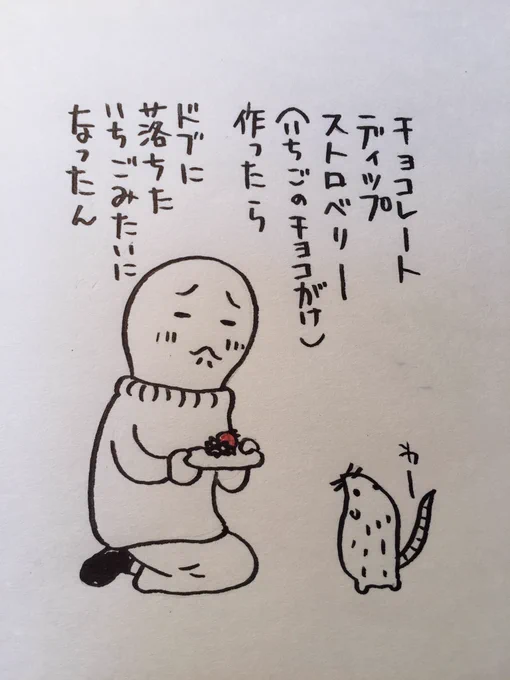 チョコレート
ディップ
ストロベリー
(いちごのチョコがけ)
作ったら
ドブに
落ちた
いちごみたいに
なったん
わー